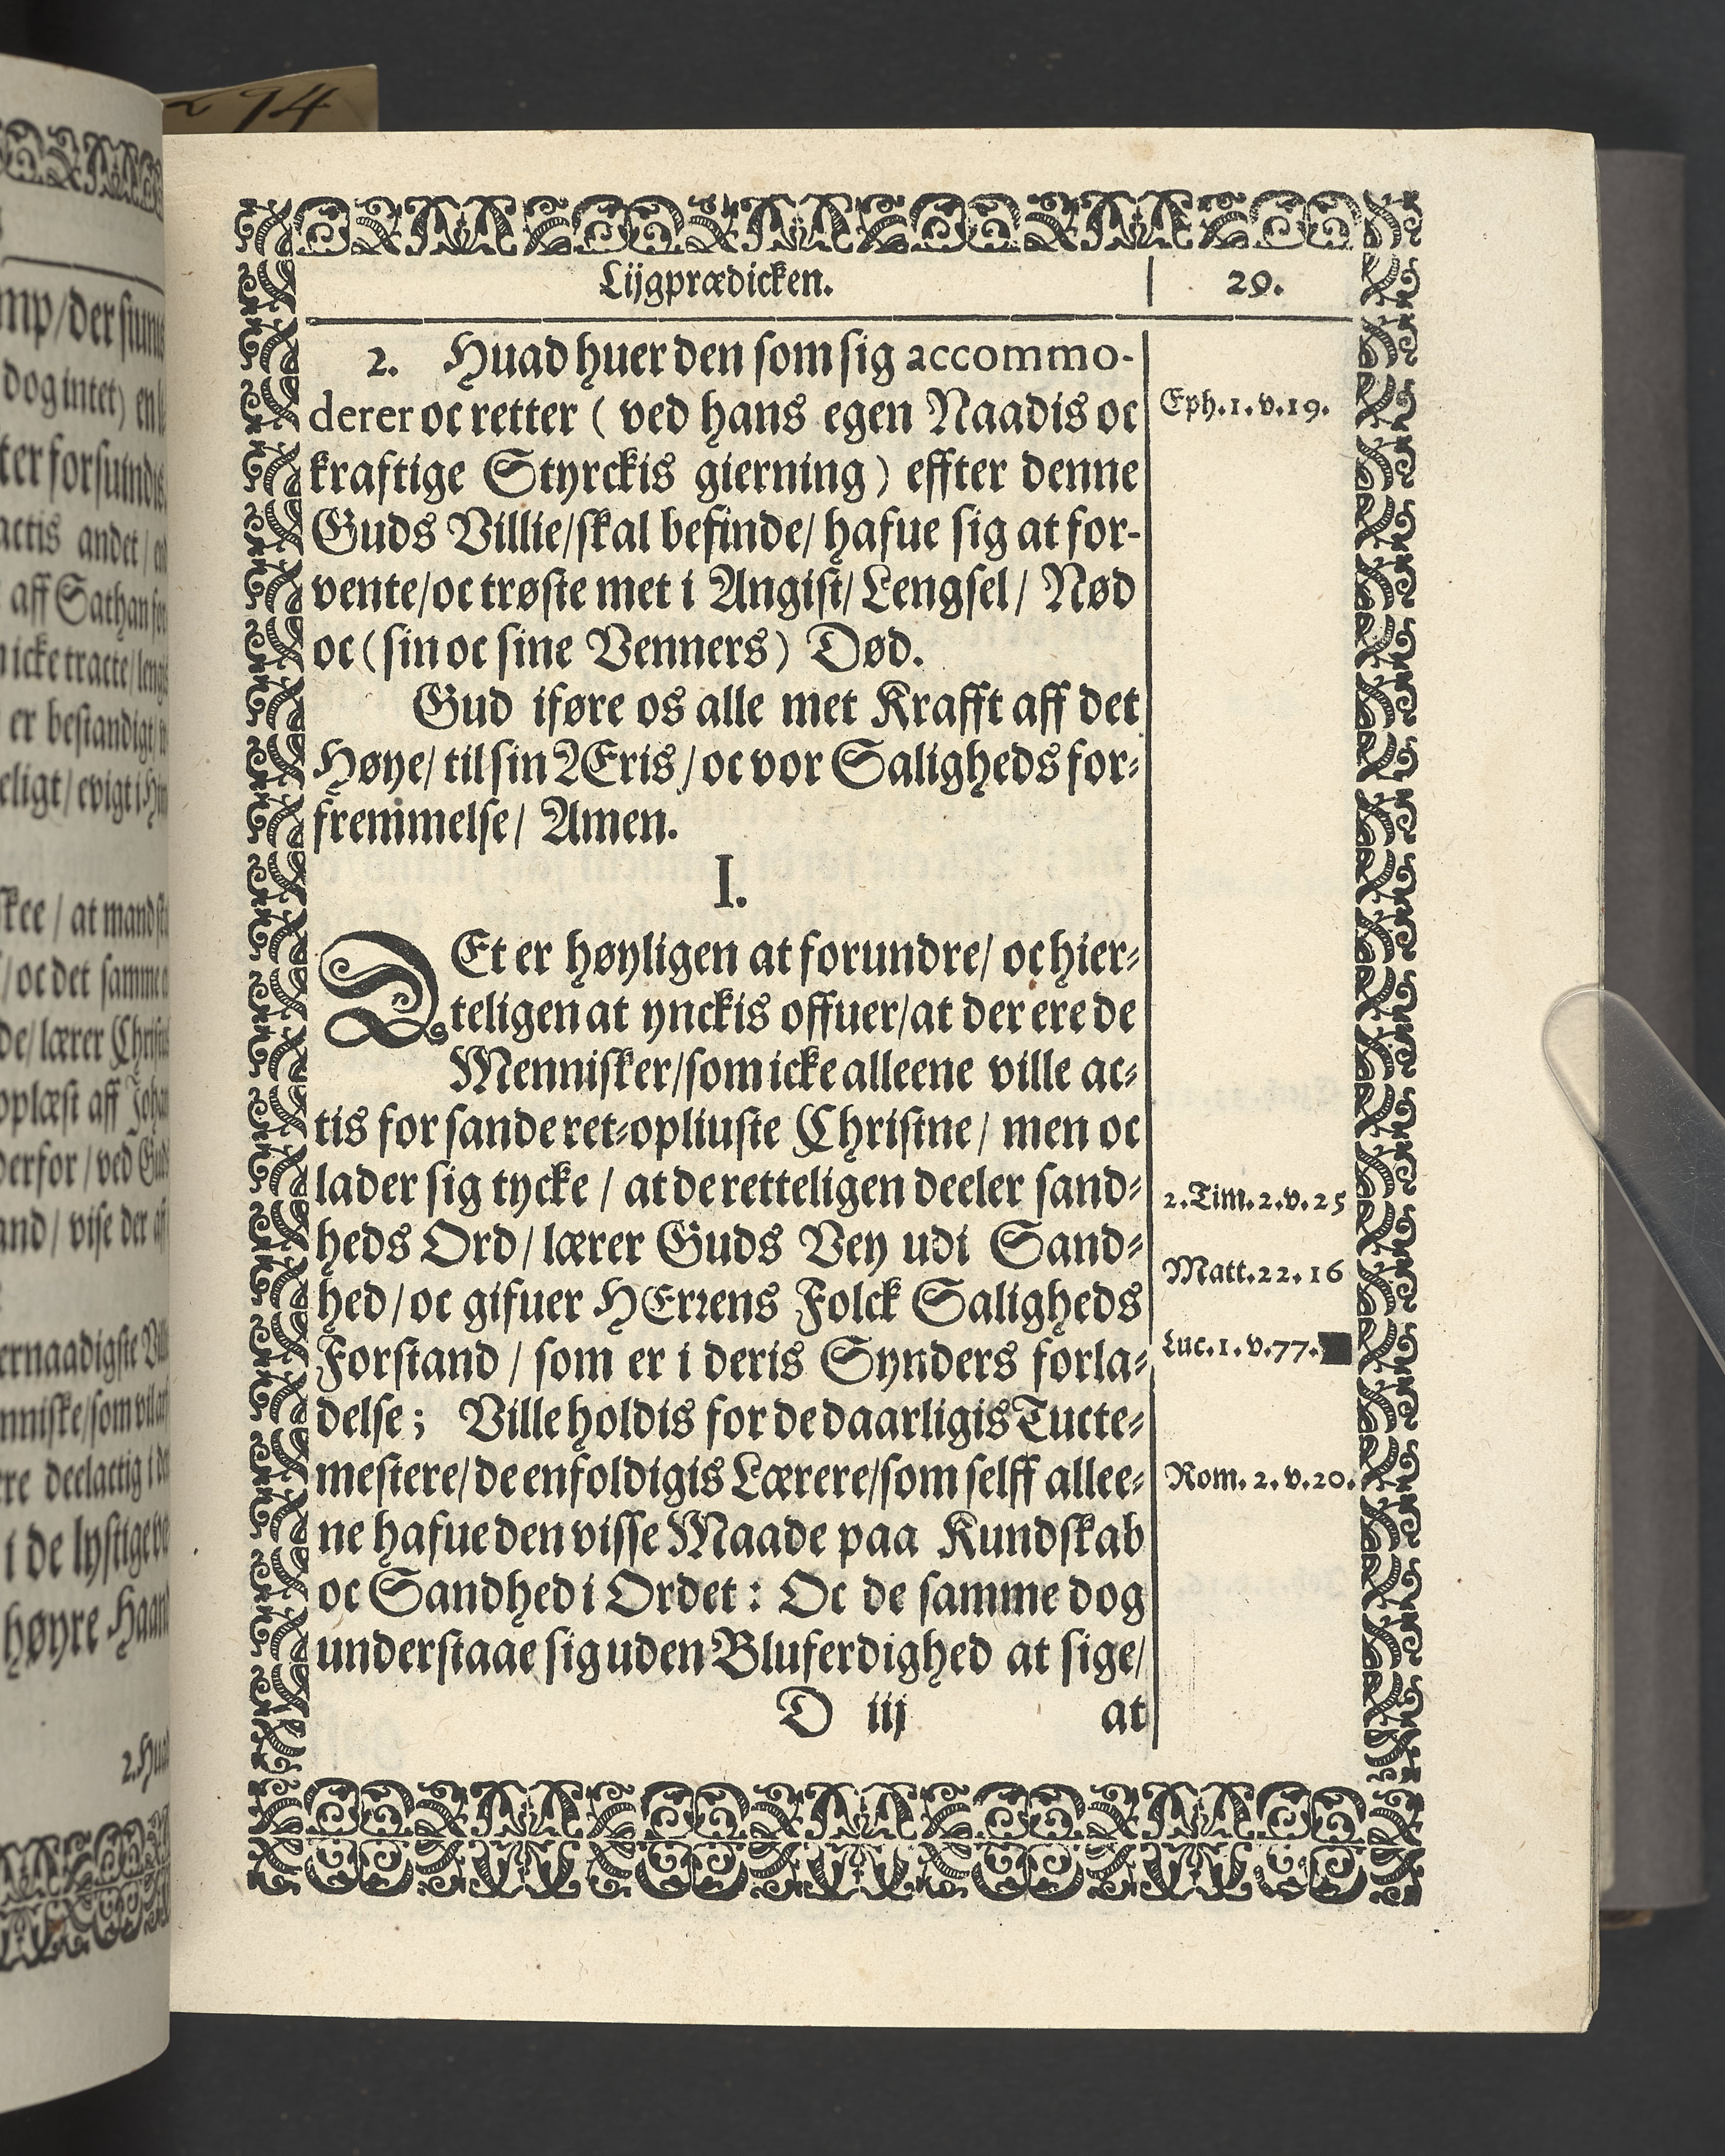 294
Lijgprædicken.
29.
2. Huad huer den som sig accommo-
derer oc retter ( ved hans egen Naadis oc
kraftige Styrckis gierning ) effter denne
Guds Villie/skal befinde/ hafue sig at for-
vente/oc trøste met i Angist/ Lengsel/ Nød
oc (sin oc sine Venners) Død.
Gud iføre os alle met Krafft aff det
Høye/ til sin ÆEris/ oc vor Saligheds for-
fremmelse/ Amen.
I.
DEt er høyligen at forundre/ oc hier-
teligen at ynckis offuer/at der ere de
Mennisker/som icke alleene ville ac-
tis for sande ret-opliuste Christne/ men oc
lader sig tycke / at de retteligen deeler sand-
heds Ord/ lærer Guds Vey udi Sand-
hed/oc gifuer HErrens Folck Saligheds
Forstand / som er i deris Synders forla-
delse; Ville holdis for de daarligis Tucte-
mestere/de enfoldigis Lærere/som selff allee-
ne hafue den visse Maade paa Kundskab
oc Sandhed i Ordet: Oc de samme dog
understaae sig uden Bluferdighed at sige/
D iij at
Eph.1.v.19.
2.Tim.2.v.25
Matt.22.16
Luc.1.v.77.
Rom.2.v.20.
dog intet) en
aff Sathan
icke tracte/
er bestandigt/
skee / at mand
/oc det samme
de/lærer
oplæst aff
derfor / ved
and / vise der
deelactig i
i de lystige
høyre Haand